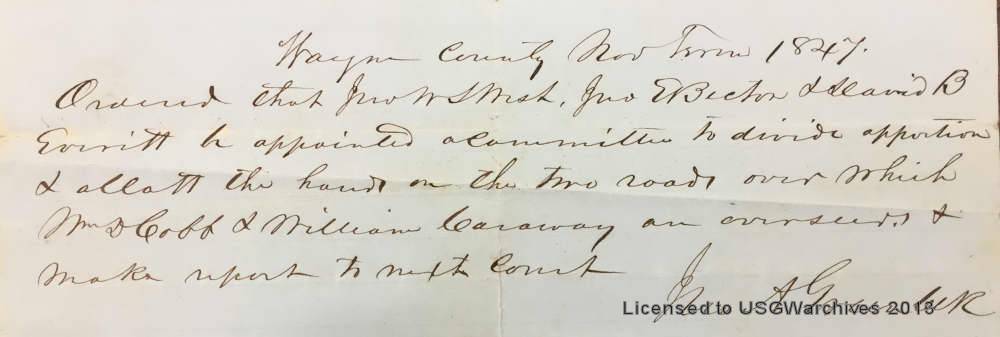 Wayne County Nov Term 1847.
Ordered that Jno W S West, Jno E Becton & David B
Everitt be appointed a committee to divide apportion
& allott the hands on the two roads over which
Wm D Cobb & William Caraway are overseers &
make report to next court
Jno A Green Clk
Licensed to USGWarchives 2018